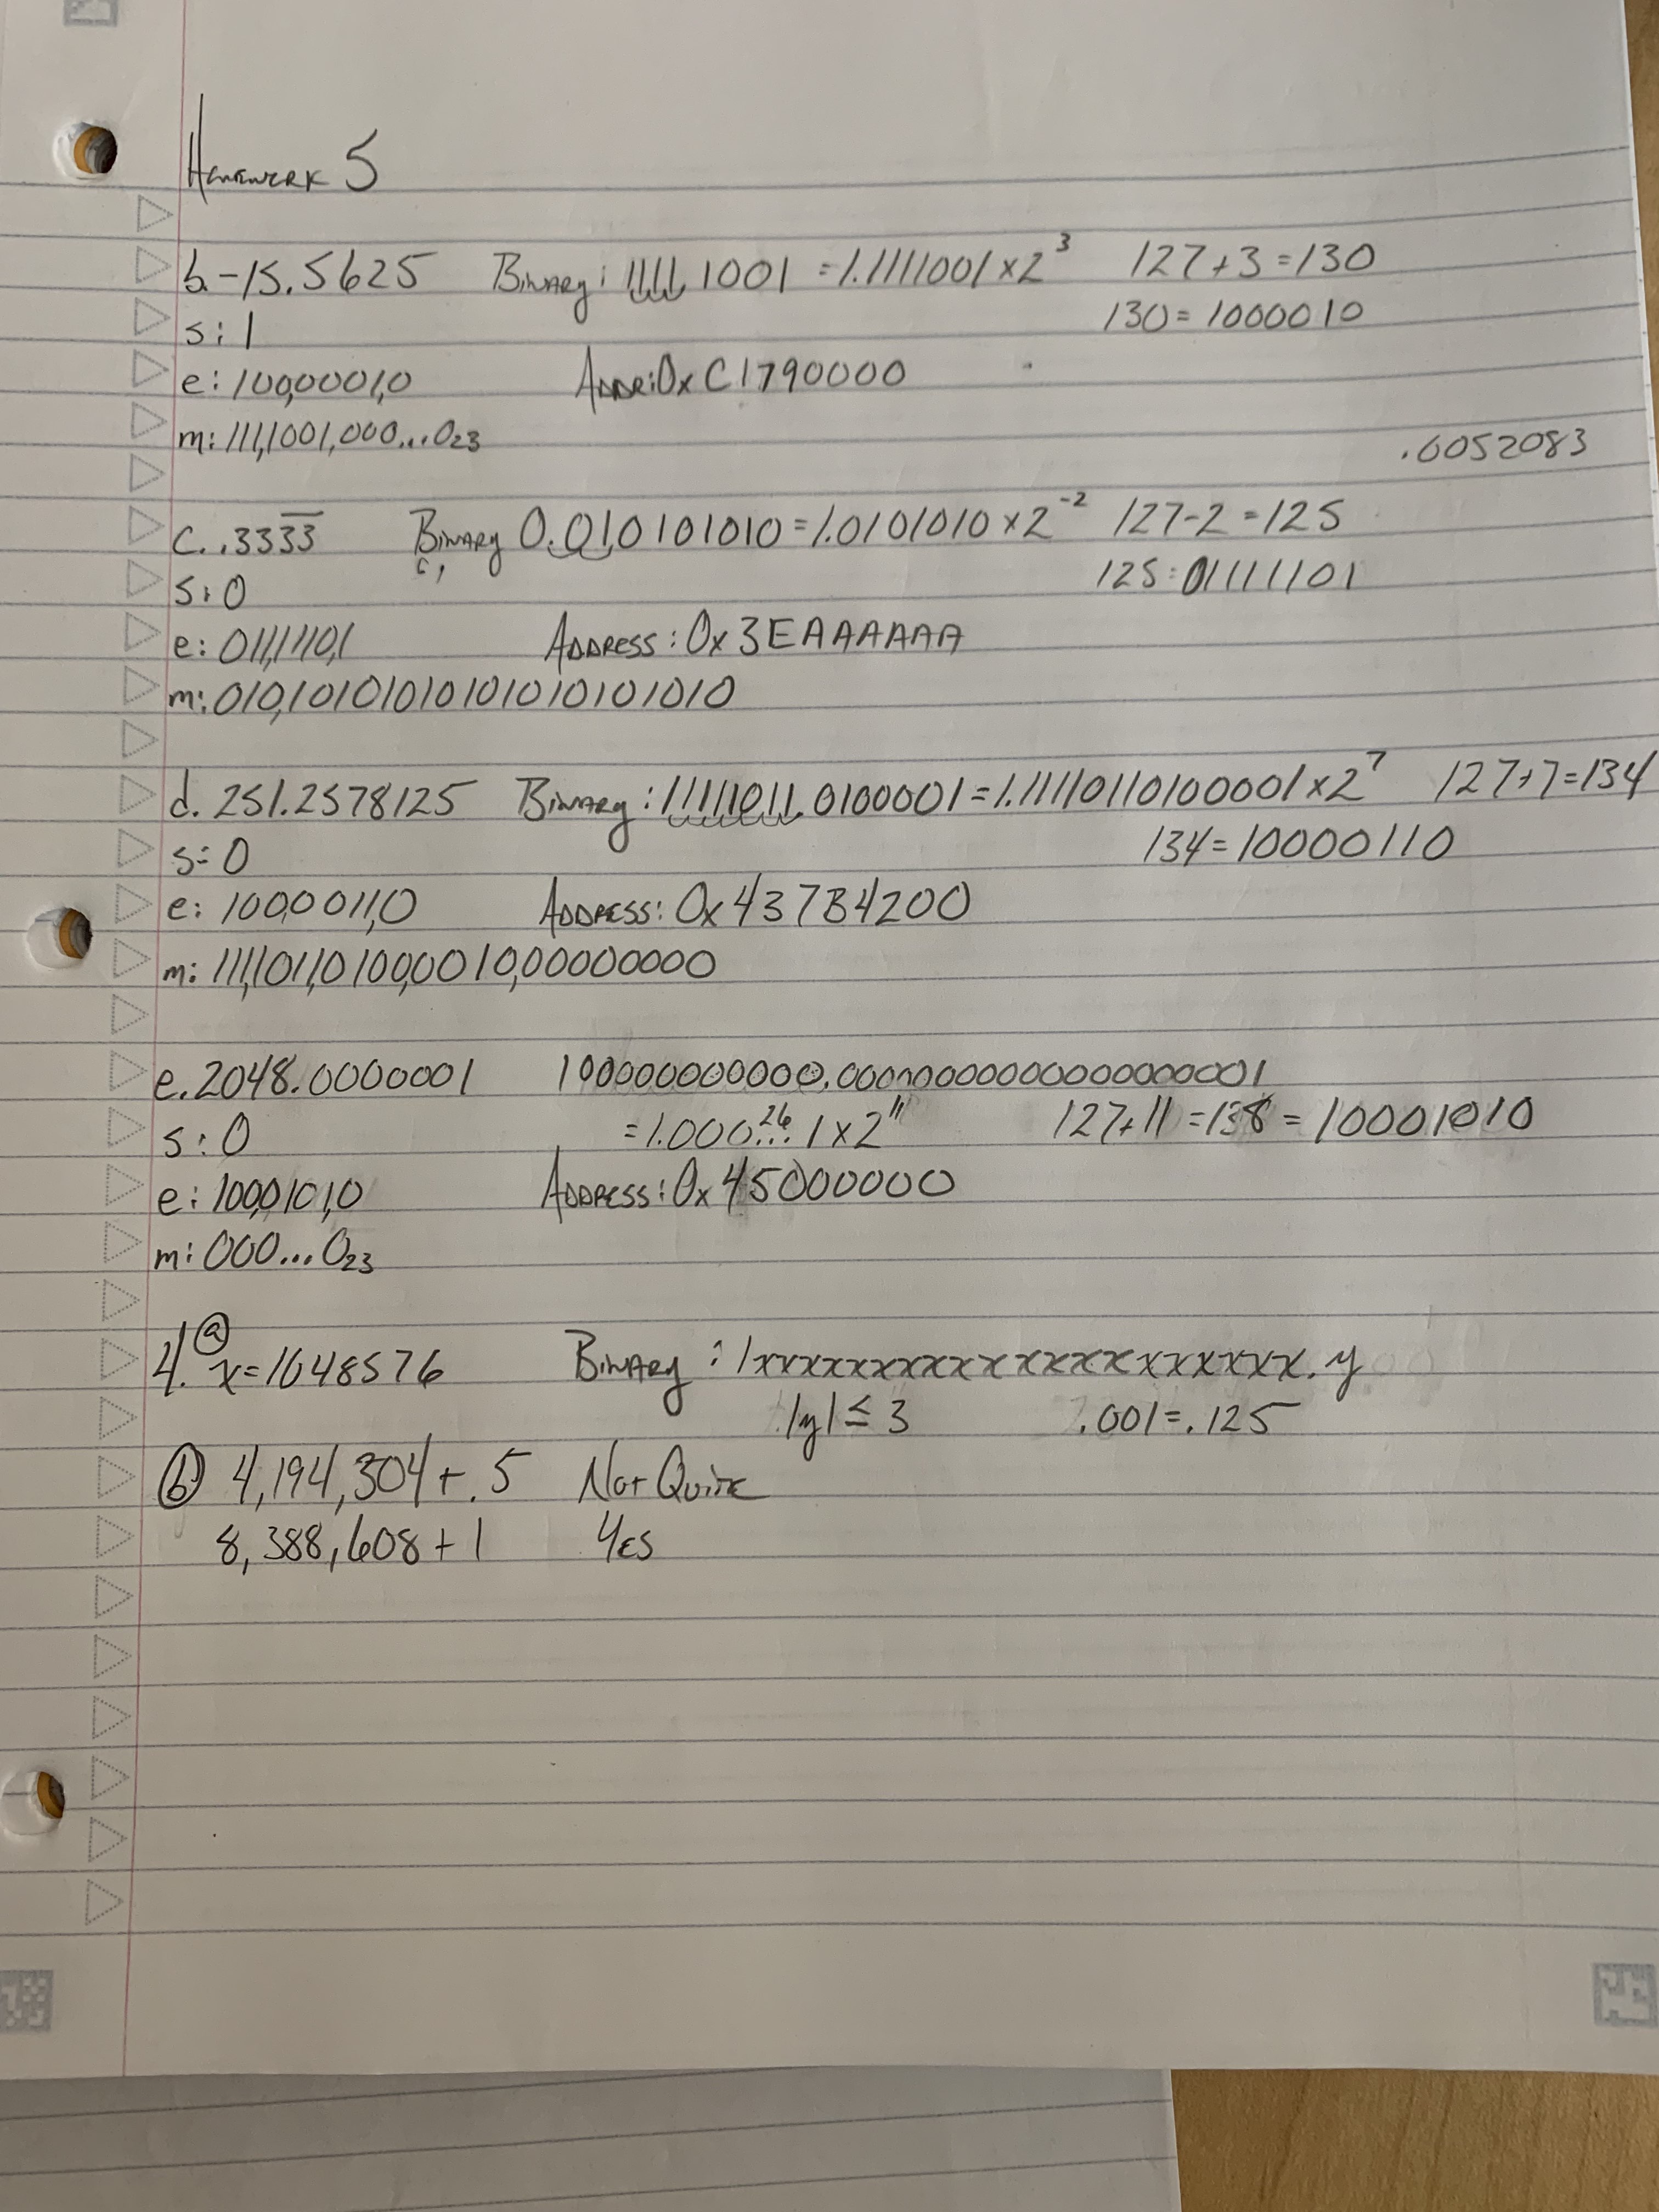 Homework 5
b. -15.5625 Binary: 1111.1001 = 1.1111001 x 2^3 127+3=130
s: 1 130 = 1000010
e: 100,0001,0 Addr: 0x C1790000
m: 111,1001,000...0₂₃
.6052083
c. .33\overline{33} Binary 0.010101010 = 1.0101010 x 2^-2 127-2=125
s: 0 125 = 01111101
e: 011,1110,1 Address: 0x 3EAAAAAA
m: 010,10101010101010101010
d. 251.2578125 Binary: 11111011.0100001 = 1.11110110100001 x 2^7 127+7=134
s= 0 134 = 10000110
e: 100,0011,0 Address: 0x 437B4200
m: 111,1011,0100,0010,00000000
e. 2048.0000001
s: 0 = 1.000...^26 1 x 2^11 127+11=138 = 10001010
e: 100,0101,0 Address: 0x 45000000
m: 000...0₂₃
4. ⓐ x=1048576 Binary: 1xxxxxxxxxxxxxxxxxxxx.y
|y| ≤ 3 .001=.125
ⓑ 4,194,304 + .5 Not Quite
8,388,608 + 1 Yes